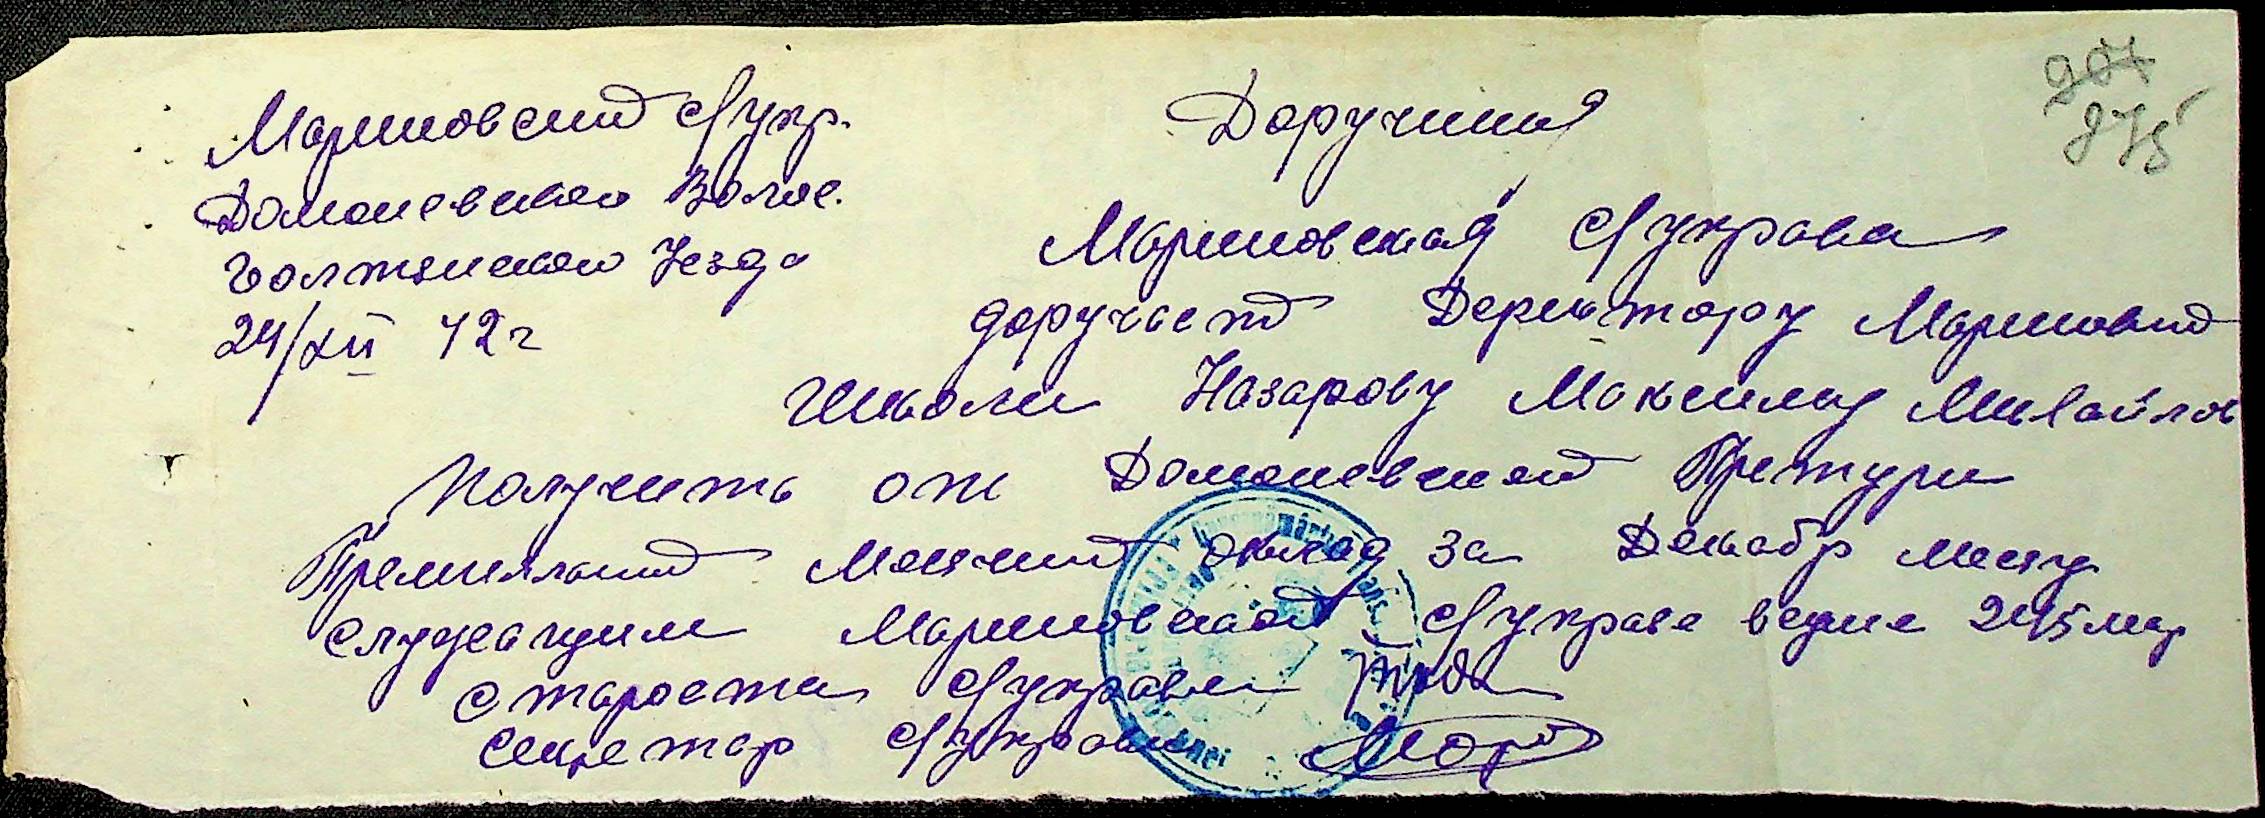 Мариновский с/упр.
Доманевского Волос.
Голтянского Уезда
24/XII 42 г
907
875
Доручиния
Мариновская с/управа
доручает Деректору Мариновкой
Школи Назарову Максиму Михайлов
Получить от Доманевской Претури
Премиялний Месячний оклад за Декабр месяц
Служащим Мариновской с/управе в сумме 245 мар
Староста с/управи
Секретар с/управи